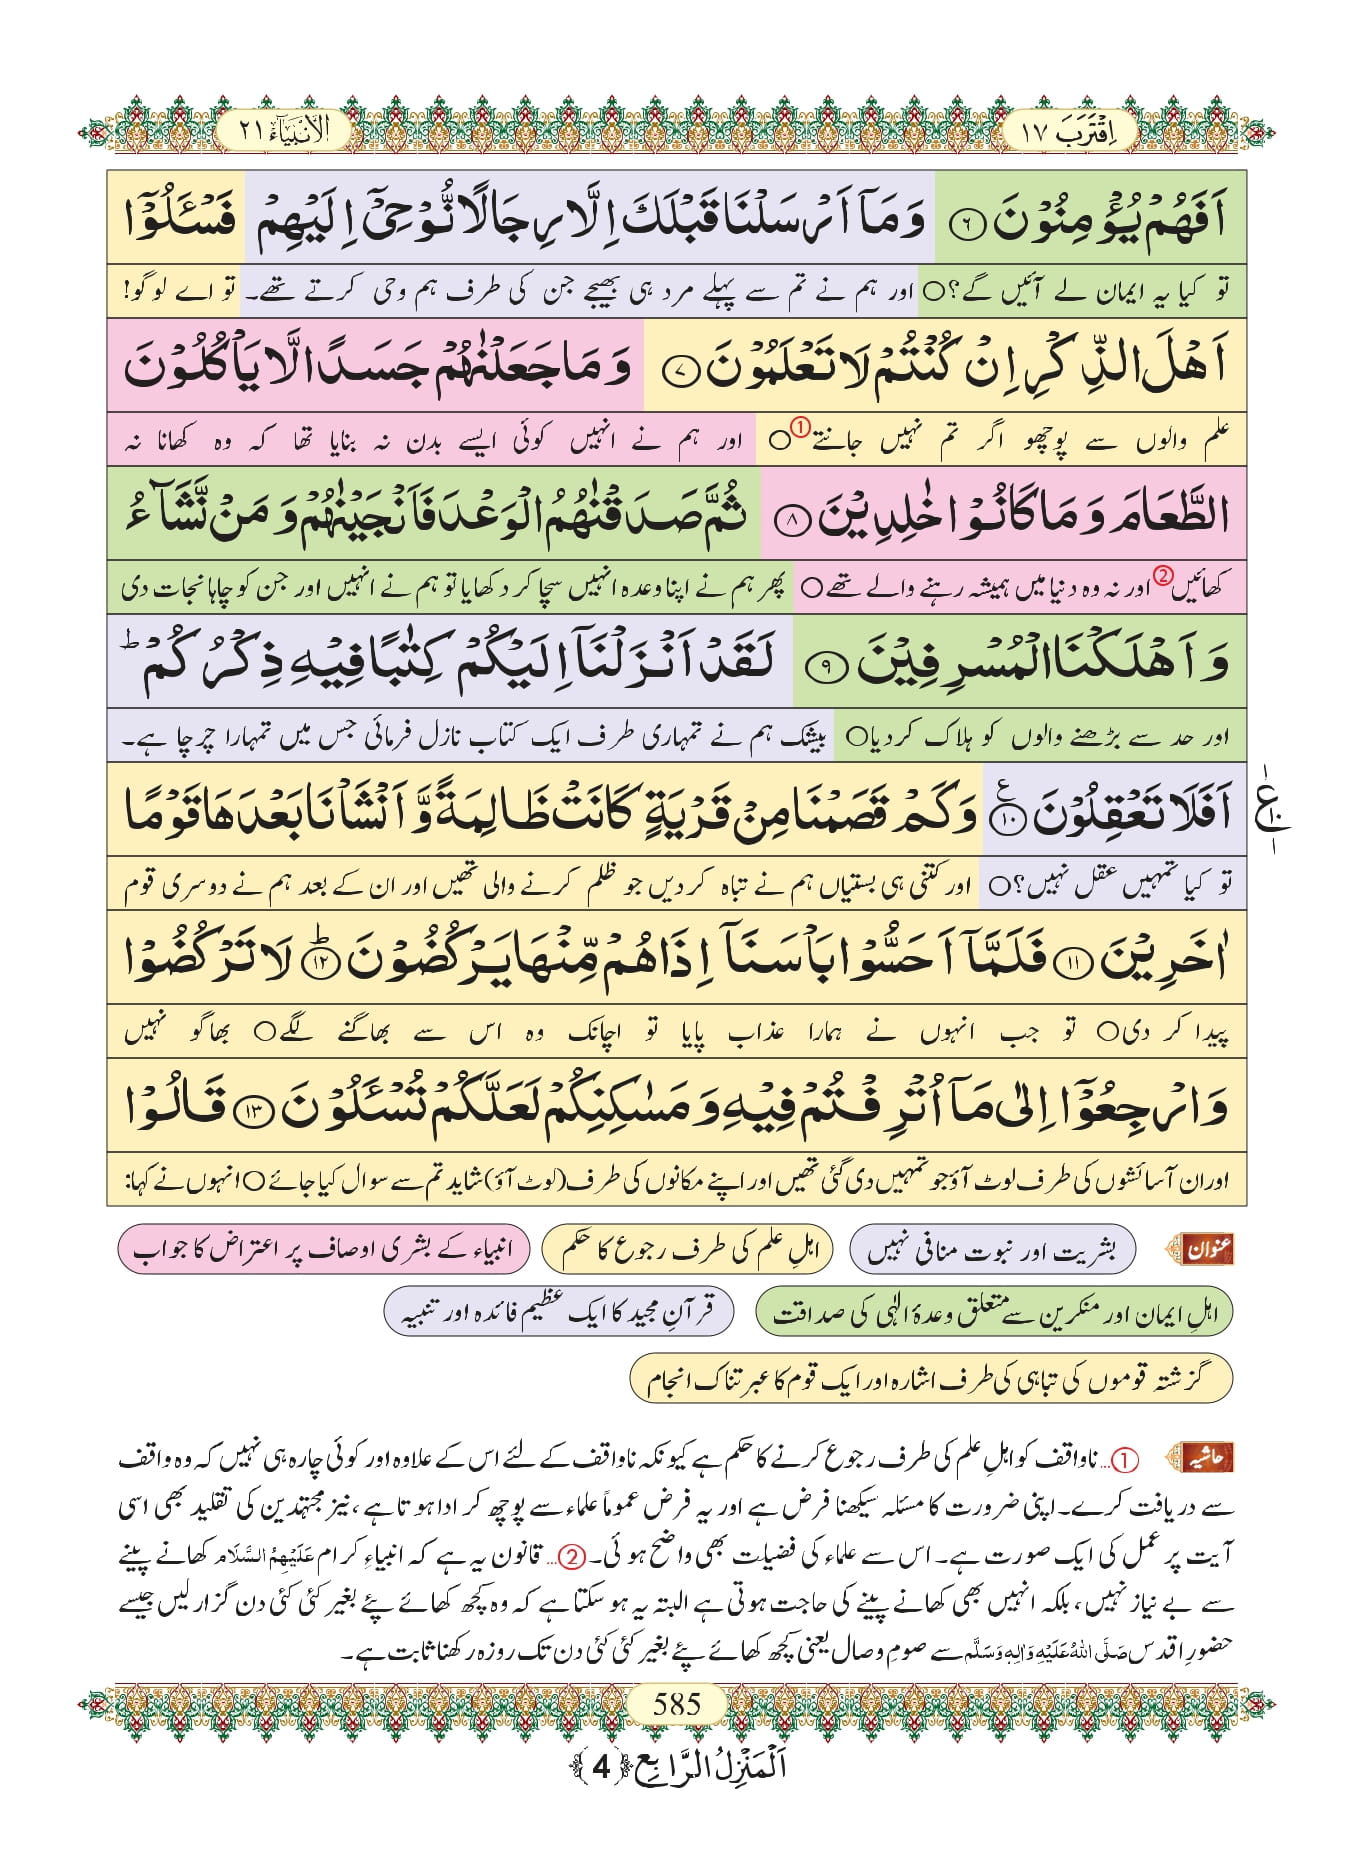 اِقْتَرَبَ ١٧
الْاَنْۢبِيَآء ٢١
اَفَهُمْ يُؤْمِنُوْنَ ۝٦ وَمَاۤ اَرْسَلْنَا قَبْلَكَ اِلَّا رِجَالًا نُّوْحِيْۤ اِلَيْهِمْ فَسْـَٔلُوْۤا
تو کیا یہ ایمان لے آئیں گے؟○ اور ہم نے تم سے پہلے مرد ہی بھیجے جن کی طرف ہم وحی کرتے تھے۔ تو اے لوگو!
اَهْلَ الذِّكْرِ اِنْ كُنْتُمْ لَا تَعْلَمُوْنَ ۝٧ وَمَا جَعَلْنٰهُمْ جَسَدًا لَّا يَاْكُلُوْنَ
علم والوں سے پوچھو اگر تم نہیں جانتے①○ اور ہم نے انہیں کوئی ایسے بدن نہ بنایا تھا کہ وہ کھانا نہ
الطَّعَامَ وَمَا كَانُوْا خٰلِدِيْنَ ۝٨ ثُمَّ صَدَقْنٰهُمُ الْوَعْدَ فَاَنْجَيْنٰهُمْ وَمَنْ نَّشَآءُ
کھائیں② اور نہ وہ دنیا میں ہمیشہ رہنے والے تھے○ پھر ہم نے اپنا وعدہ انہیں سچا کر دکھایا تو ہم نے انہیں اور جن کو چاہا نجات دی
وَاَهْلَكْنَا الْمُسْرِفِيْنَ ۝٩ لَقَدْ اَنْزَلْنَاۤ اِلَيْكُمْ كِتٰبًا فِيْهِ ذِكْرُكُمْ ؕ
اور حد سے بڑھنے والوں کو ہلاک کردیا○ بیشک ہم نے تمہاری طرف ایک کتاب نازل فرمائی جس میں تمہارا چرچا ہے۔
اَفَلَا تَعْقِلُوْنَ ۝١٠ ع وَكَمْ قَصَمْنَا مِنْ قَرْيَةٍ كَانَتْ ظَالِمَةً وَّاَنْشَاْنَا بَعْدَهَا قَوْمًا
١ ع ١٠ ١
تو کیا تمہیں عقل نہیں؟○ اور کتنی ہی بستیاں ہم نے تباہ کردیں جو ظلم کرنے والی تھیں اور ان کے بعد ہم نے دوسری قوم
اٰخَرِيْنَ ۝١١ فَلَمَّاۤ اَحَسُّوْا بَاْسَنَاۤ اِذَا هُمْ مِّنْهَا يَرْكُضُوْنَ ۝١٢ؕ لَا تَرْكُضُوْا
پیدا کر دی○ تو جب انہوں نے ہمارا عذاب پایا تو اچانک وہ اس سے بھاگنے لگے○ بھاگو نہیں
وَارْجِعُوْۤا اِلٰى مَاۤ اُتْرِفْتُمْ فِيْهِ وَمَسٰكِنِكُمْ لَعَلَّكُمْ تُسْـَٔلُوْنَ ۝١٣ قَالُوْا
اور ان آسائشوں کی طرف لوٹ آؤ جو تمہیں دی گئی تھیں اور اپنے مکانوں کی طرف (لوٹ آؤ) شاید تم سے سوال کیا جائے○ انہوں نے کہا:
عنوان بشریت اور نبوت منافی نہیں اہلِ علم کی طرف رجوع کا حکم انبیاء کے بشری اوصاف پر اعتراض کا جواب
اہلِ ایمان اور منکرین سے متعلق وعدۂ الٰہی کی صداقت قرآنِ مجید کا ایک عظیم فائدہ اور تنبیہ
گزشتہ قوموں کی تباہی کی طرف اشارہ اور ایک قوم کا عبرتناک انجام
حاشیہ ①... ناواقف کو اہلِ علم کی طرف رجوع کرنے کا حکم ہے کیونکہ ناواقف کے لئے اس کے علاوہ اور کوئی چارہ ہی نہیں کہ وہ واقف
سے دریافت کرے۔ اپنی ضرورت کا مسئلہ سیکھنا فرض ہے اور یہ فرض عموماً علماء سے پوچھ کر ادا ہوتا ہے، نیز مجتہدین کی تقلید بھی اسی
آیت پر عمل کی ایک صورت ہے۔ اس سے علماء کی فضیلت بھی واضح ہوئی۔ ②... قانون یہ ہے کہ انبیاءِ کرام عَلَيْهِمُ السَّلَام کھانے پینے
سے بے نیاز نہیں، بلکہ انہیں بھی کھانے پینے کی حاجت ہوتی ہے البتہ یہ ہو سکتا ہے کہ وہ کچھ کھائے پئے بغیر کئی کئی دن گزار لیں جیسے
حضورِ اقدس صَلَّى اللهُ عَلَيْهِ وَاٰلِهٖ وَسَلَّم سے صومِ وصال یعنی کچھ کھائے پئے بغیر کئی کئی دن تک روزہ رکھنا ثابت ہے۔
585
اَلْمَنْزِلُ الرَّابِع ﴿4﴾